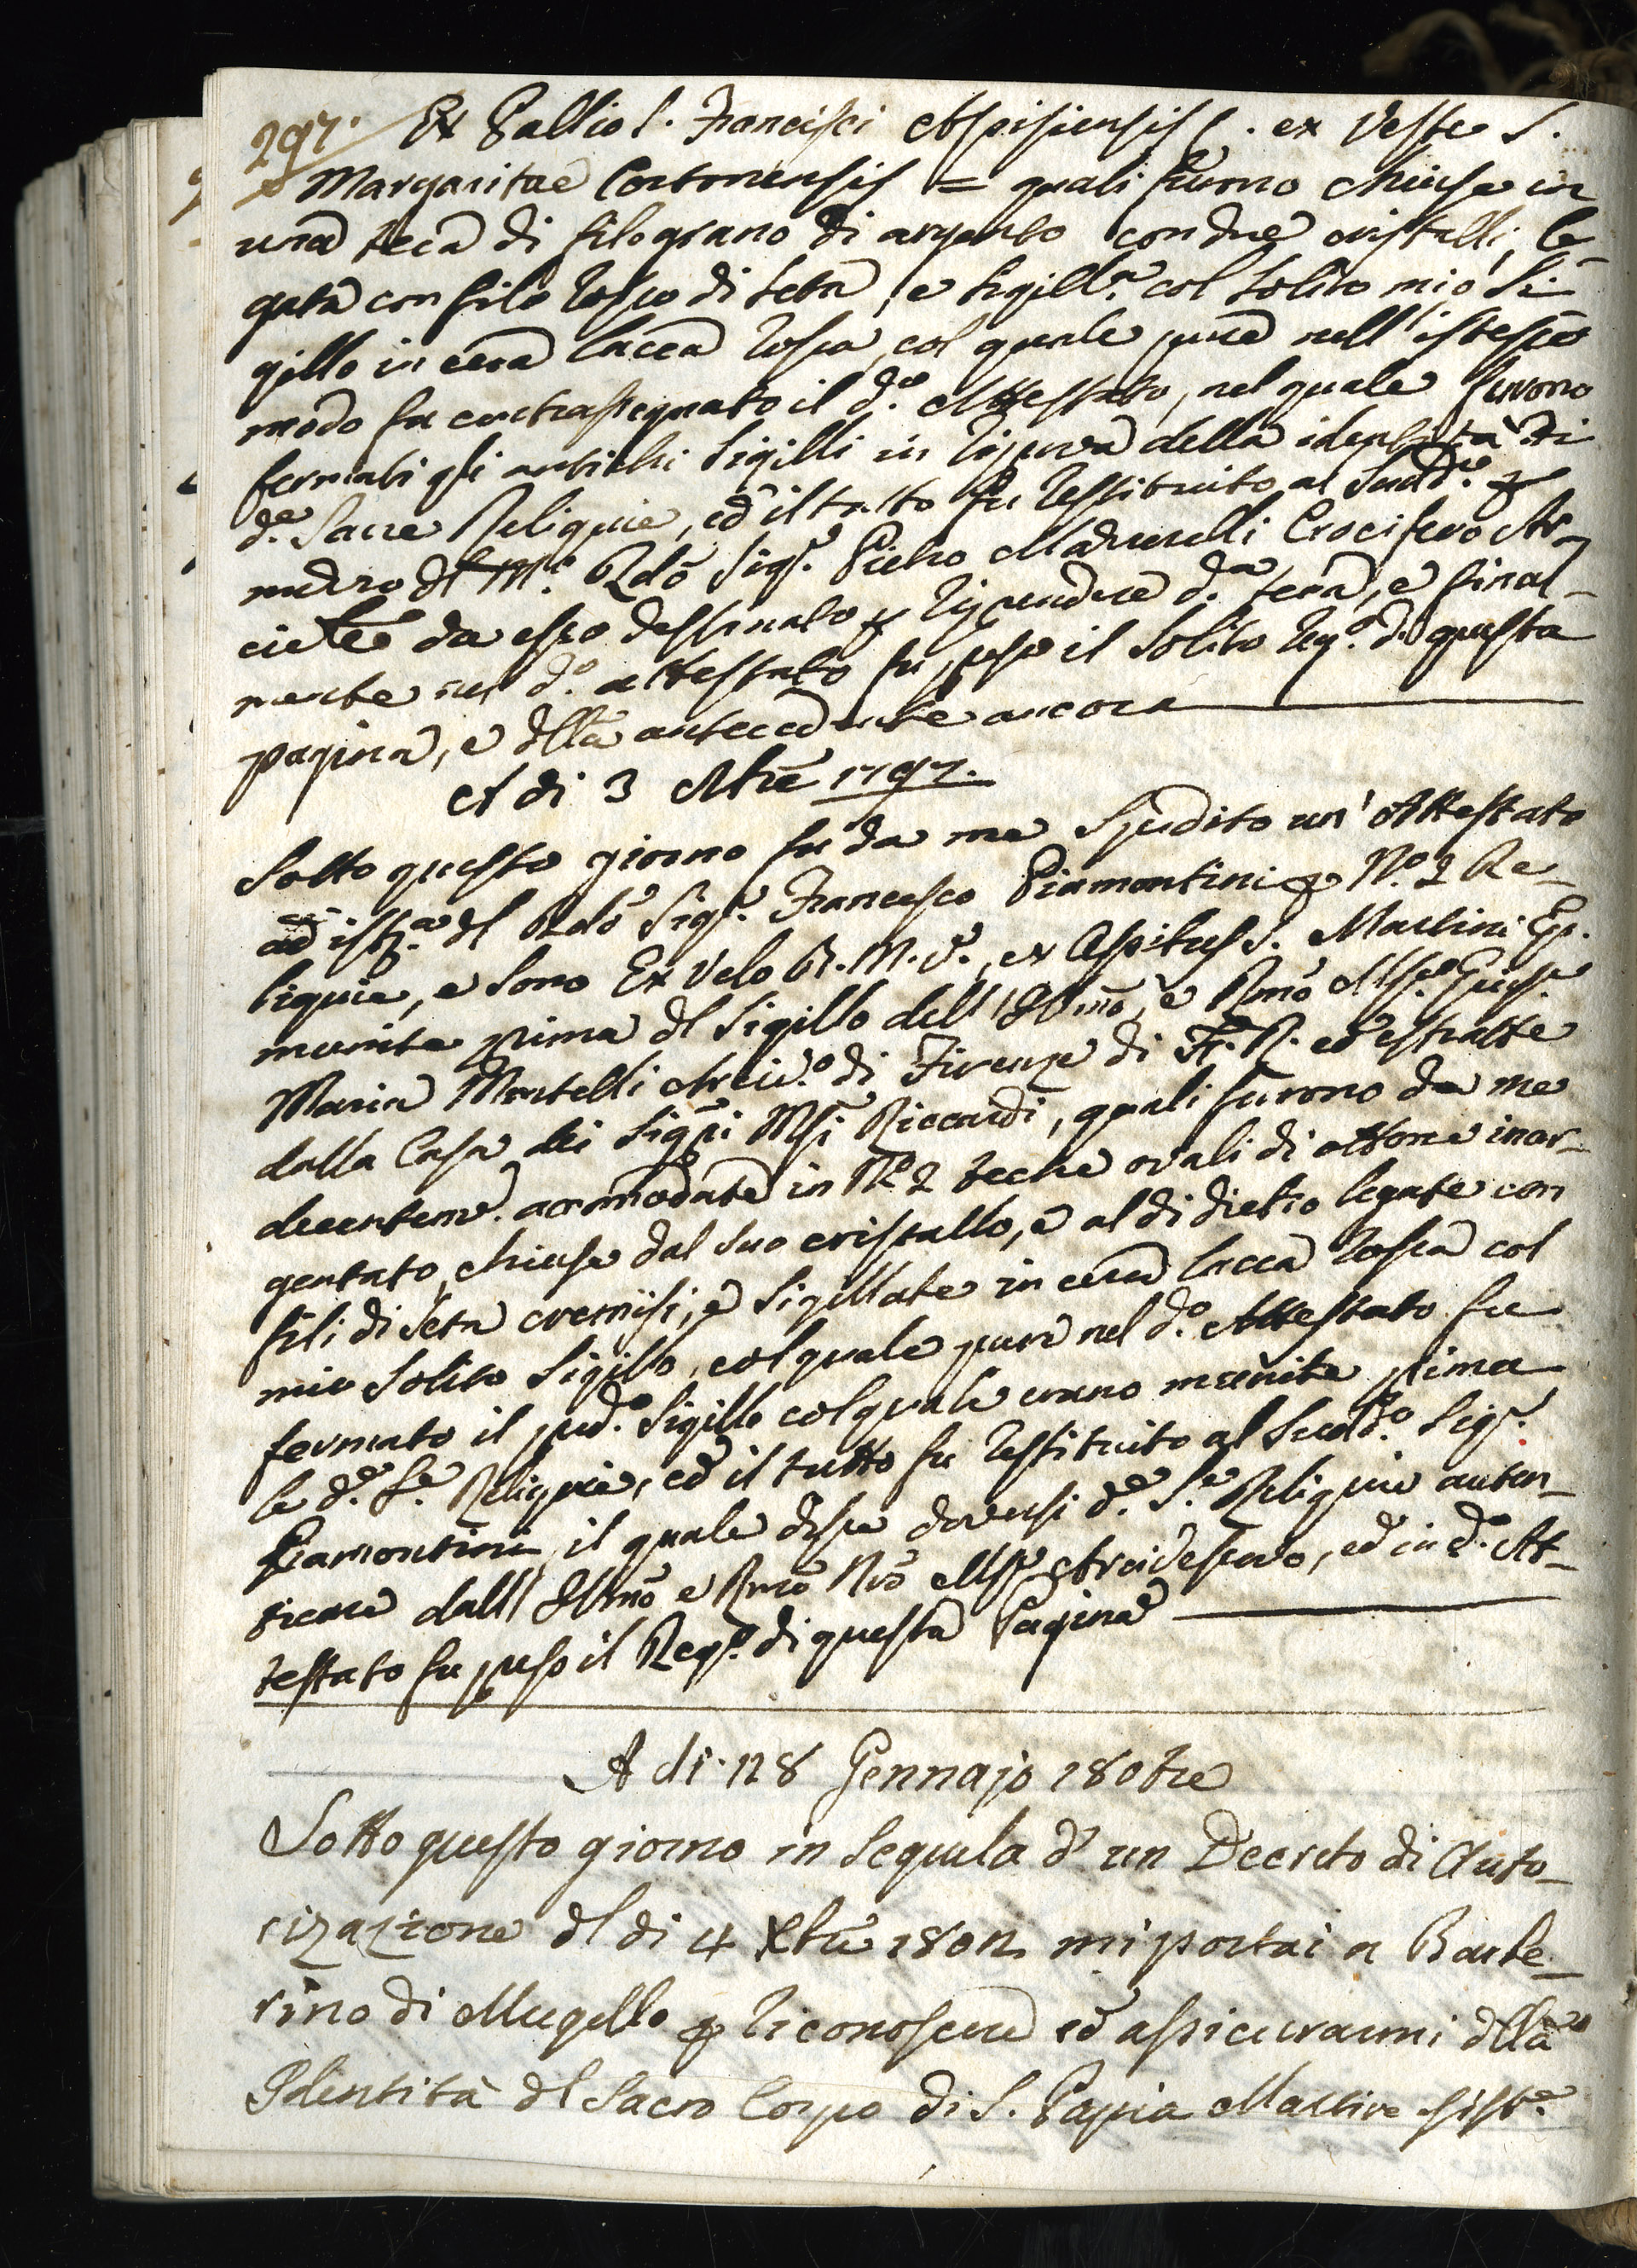 297. Ex Pallio S. Francisci Assisiensis S. ex Veste S.
Margaritae Cortonensis = quali furono chiuse in
una teca di filograno di argento con due cristalli, le-
gata con filo rosso di seta, e sigill.ª col solito mio Si-
gillo in cera lacca rossa, col quale pure nell'istesso
modo fu contrassegnato il d.º Attestato, nel quale furono
fermati gli antichi Sigilli in riprova della identità di
d.e Sacre Reliquie, ed il tutto fu restituito al Sud.º
del M.º Rdo Sig.r Pietro Crocifero Ar-
da esso destinato p riprendere d.ª teca, e final-
mente nel d.º attestato fu preso il solito reg.º di questa
pagina, e dlla antecedente ancora
A di 3 1797.
Sotto questo giorno fu da me spedito un' Attestato
ad ist.ª dl Rdo Sig.r Francesco Piamontini p N.º 2 Re-
liquie, e sono Ex Velo B.M.V., ex S. Martini Ep.
munite prima dl Sigillo dell'Illmo, e Rmo Msr. Gius.e
Maria Martelli Arciv.º di Firenze di F. R. ed estratte
dalla Casa dei Sigri Msi Riccardi, quali furono da me
decentem. accomodate in N.º 2 teche ovali di ottone inar-
gentato, chiuse dal suo cristallo, e al di dietro legate con
fili di Seta cremisi, e sigillate in cera lacca rossa col
mio solito Sigillo, col quale pure nel d.º Attestato fu
fermato il pred.º Sigillo col quale erano munite prima
le d.e S.e Reliquie, ed il tutto fu restituito al Sud.º Sig.r
Piamontini, il quale disse doversi d.e S.e Reliquie auten-
ticare dall'Illmo e Rmo Nro Msr. Arcivescovo, ed in d.º At-
testato fu preso il Reg.º di questa Pagina
A di 28 Gennajo 180tre
Sotto questo giorno in sequela d' un Decreto di Auto-
rizazione dl di 4 Xbre 1802 mi portai a Barbe-
rino di Mugello p riconoscere ed assicurarmi dlla
Identità dl Sacro Corpo di S. Papia Martire